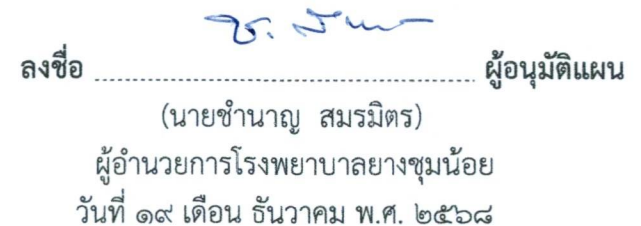 ลงชื่อ ........................................................ ผู้อนุมัติแผน
(นายชำนาญ สมรมิตร)
ผู้อำนวยการโรงพยาบาลยางชุมน้อย
วันที่ ๑๙ เดือน ธันวาคม พ.ศ. ๒๕๖๘